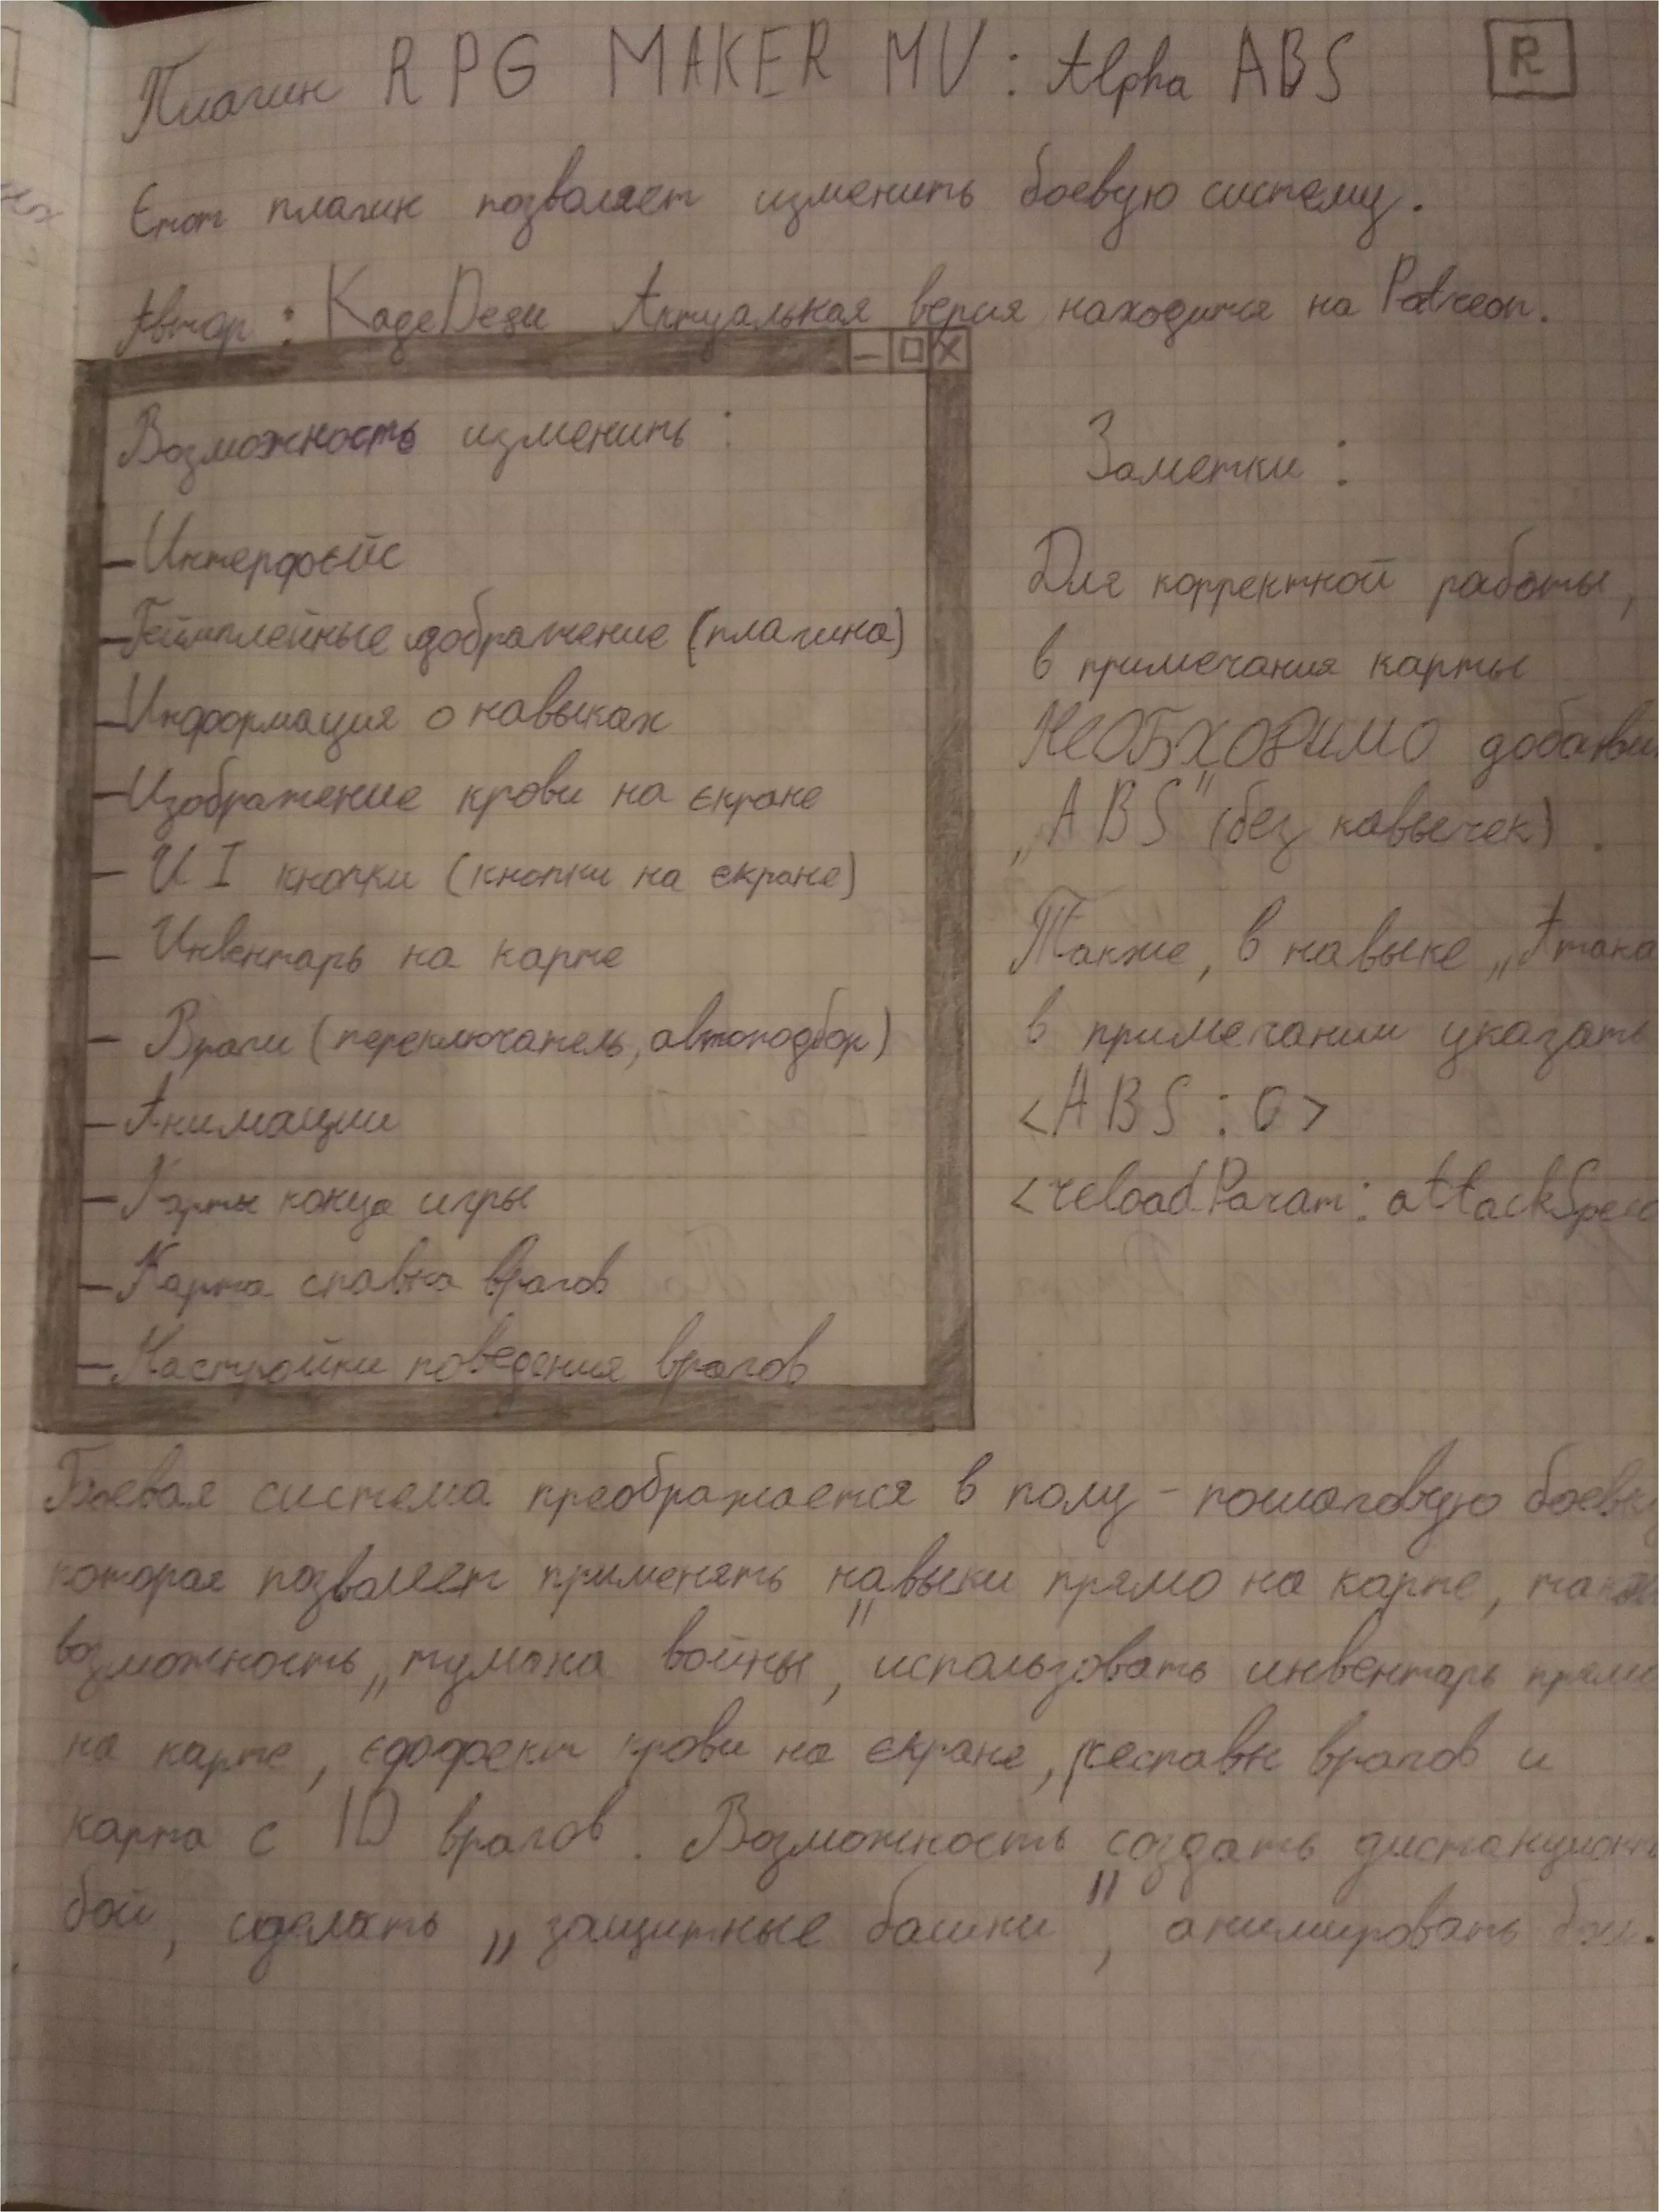 Плагин RPG MAKER MV: Alpha ABS R
Етот плагин позволяет изменить боевую систему.
Автор: KageDesu Актуальная версия находится на Patreon.
Возможность изменить:
- Интерфейс
- Геймплейные изображение (плагина)
- Информация о навыках
- Изображение крови на екране
- UI кнопки (кнопки на екране)
- Инвентарь на карте
- Враги (переключатель, автоподбор)
- Анимации
- Карты конца игры
- Карта спавна врагов
- Настройки поведения врагов
Заметки:
Для корректной работы,
в примечания карты
НЕОБХОДИМО
„ABS" (без кавычек).
Также, в навыке „Атака
в примечании указать
<ABS : 0>
<reloadParam: attackSpeed
Боевая система преображается в полу-пошаговую
которая позволяет применять навыки прямо на карте,
возможность „тумана войны", использовать инвентарь
на карте, еффект крови на екране, респавн врагов и
карта с ID врагов. Возможность создать
бой, сделать „защитные башни", анимировать